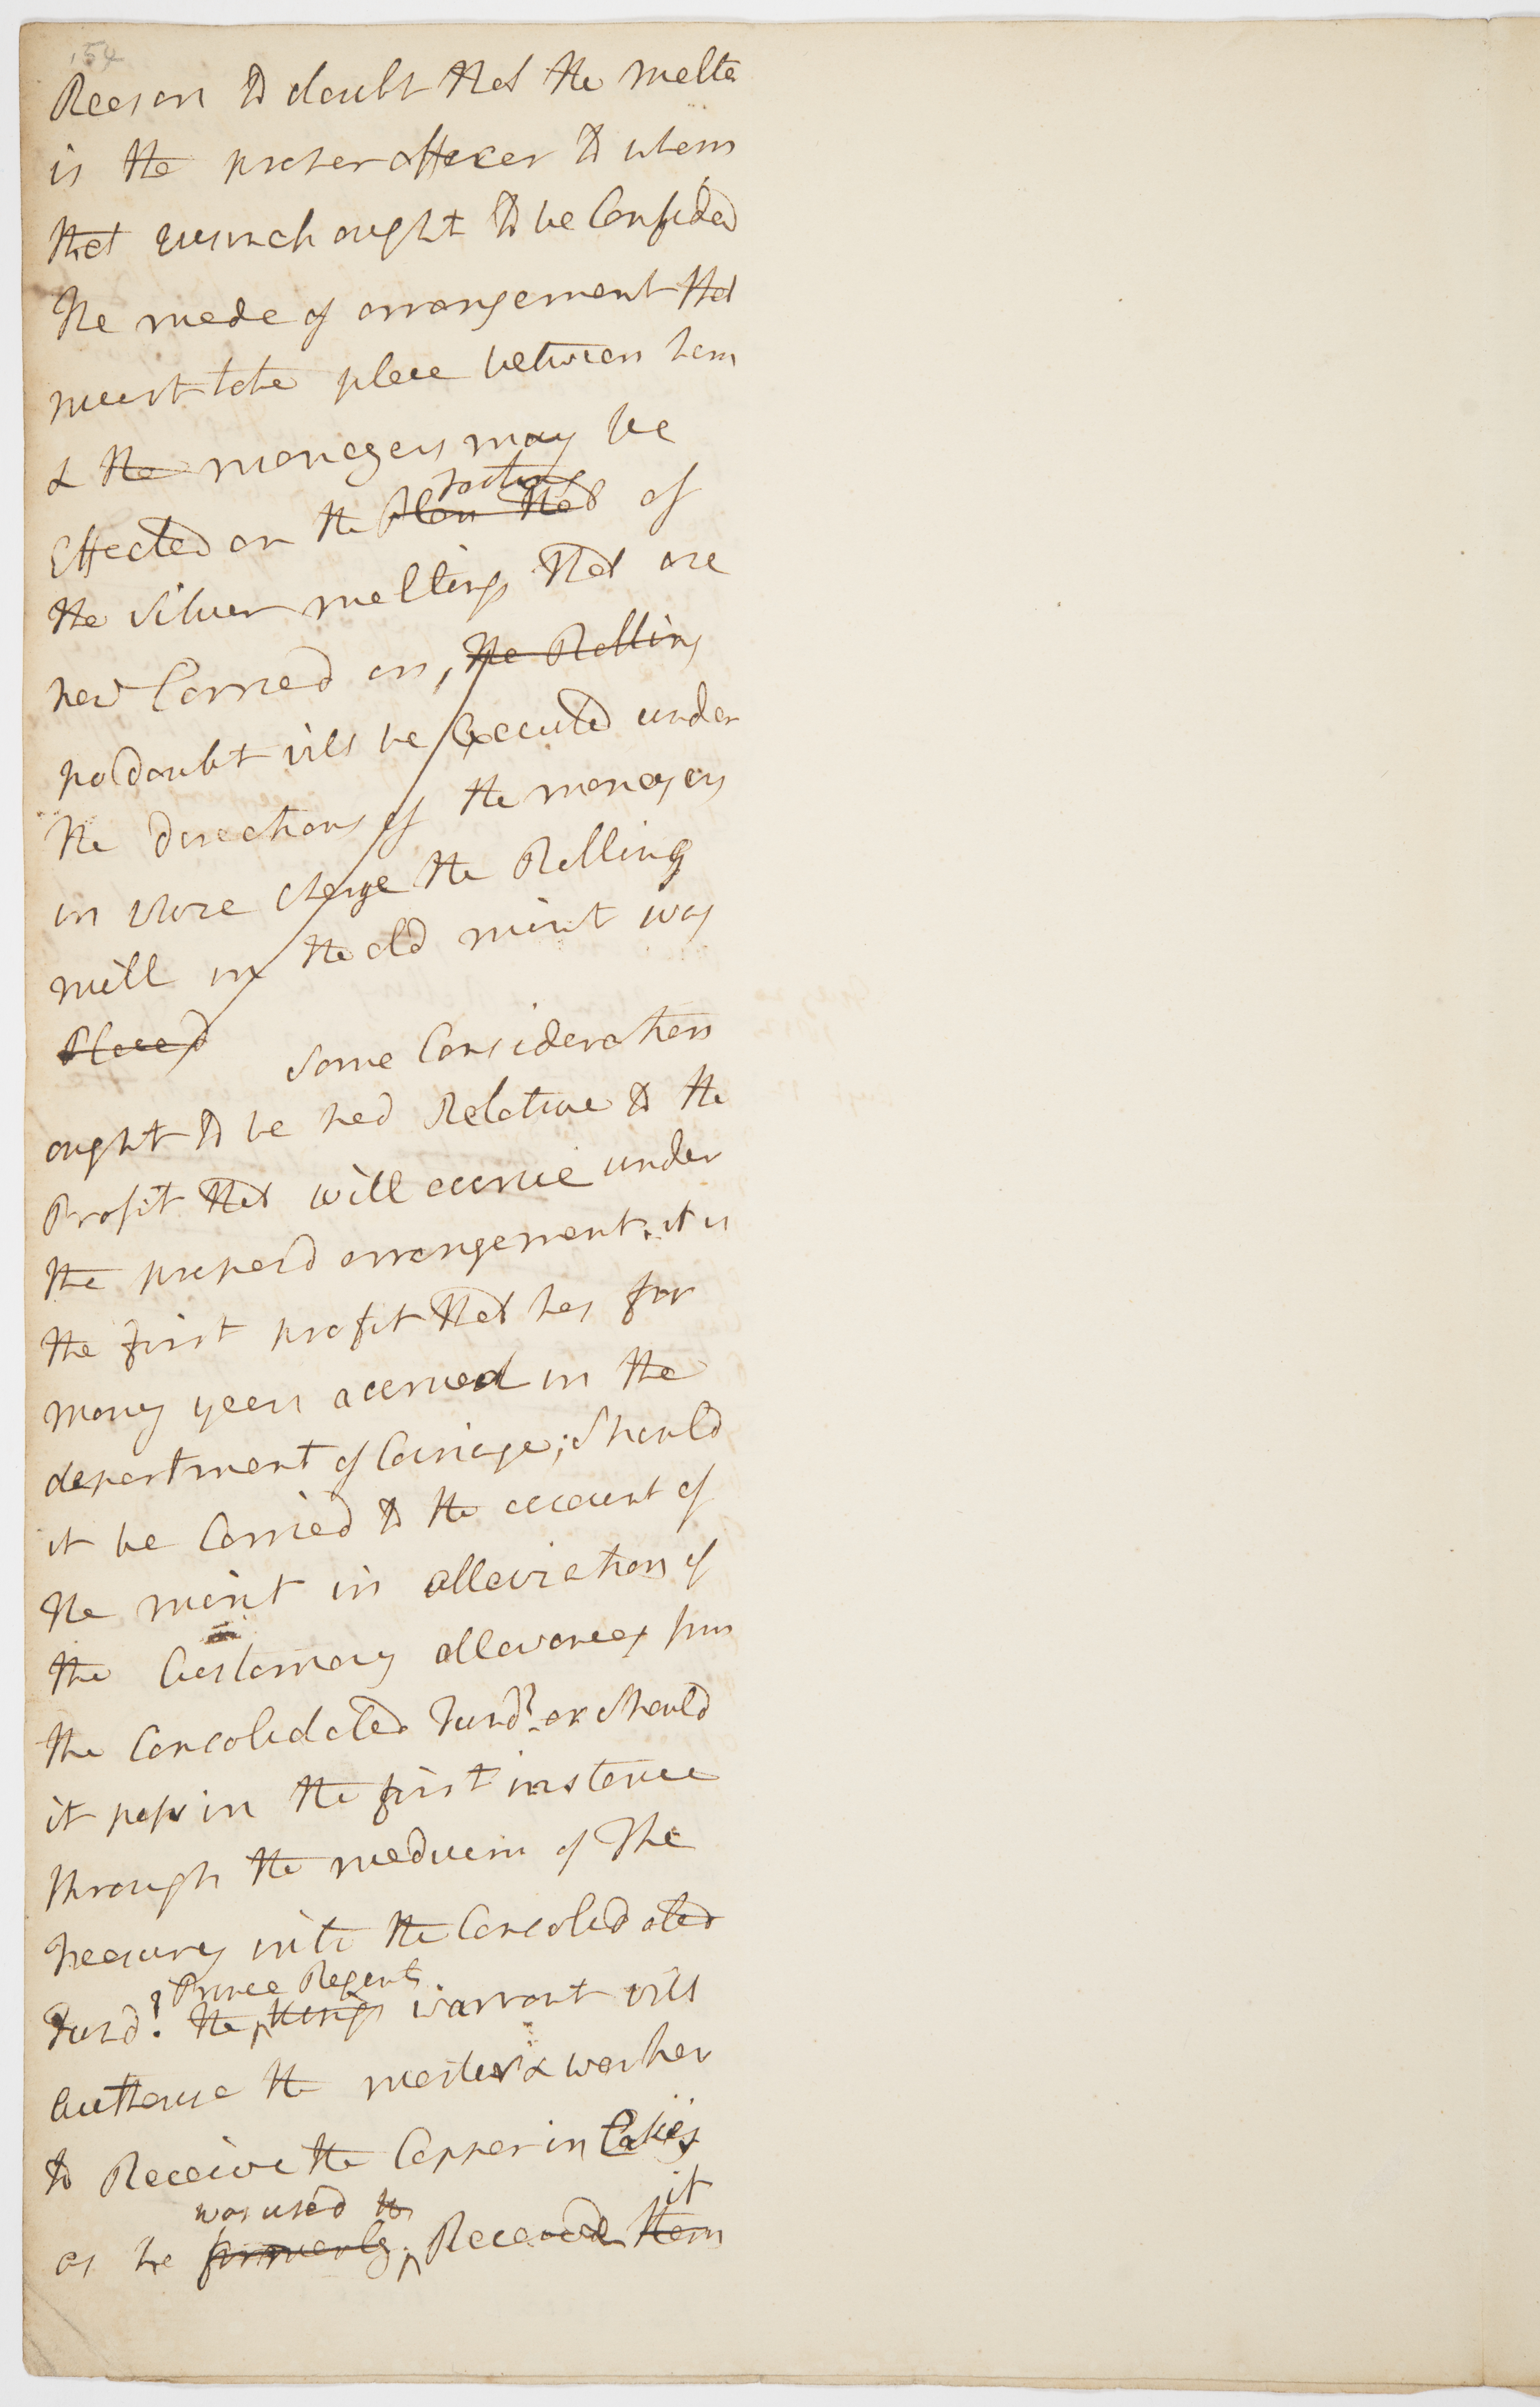 154
Reason to doubt that the melte
is the proper officer to whom
that branch ought to be Confided
The mode of arrangement that
must take place between him
& the managers may be
footing
Effected on the Plan that of
the Silver meltings that are
now Carried on, the Rolling
no doubt will be Executed under
the directions of the managers
in whose charge the Rolling
mill in the old mint was
Placed
Some Consideration
ought to be had Relative to the
Profit that will accrue under
the proposd arrangement. it is
the first profit that has for
many years accrued in the
department of Coinage; Should
it be Carried to the account of
the mint in alleviation of
the Customary allowances from
the Consolidated Fund? or Should
it pass in the first instance
through the medium of The
Treasury into the Consolidated
Prince Regents
Fund? the Kings warrant will
authorise the master & worker
to Receive the Copper in Cakes
was used to it
as he formerly Received them